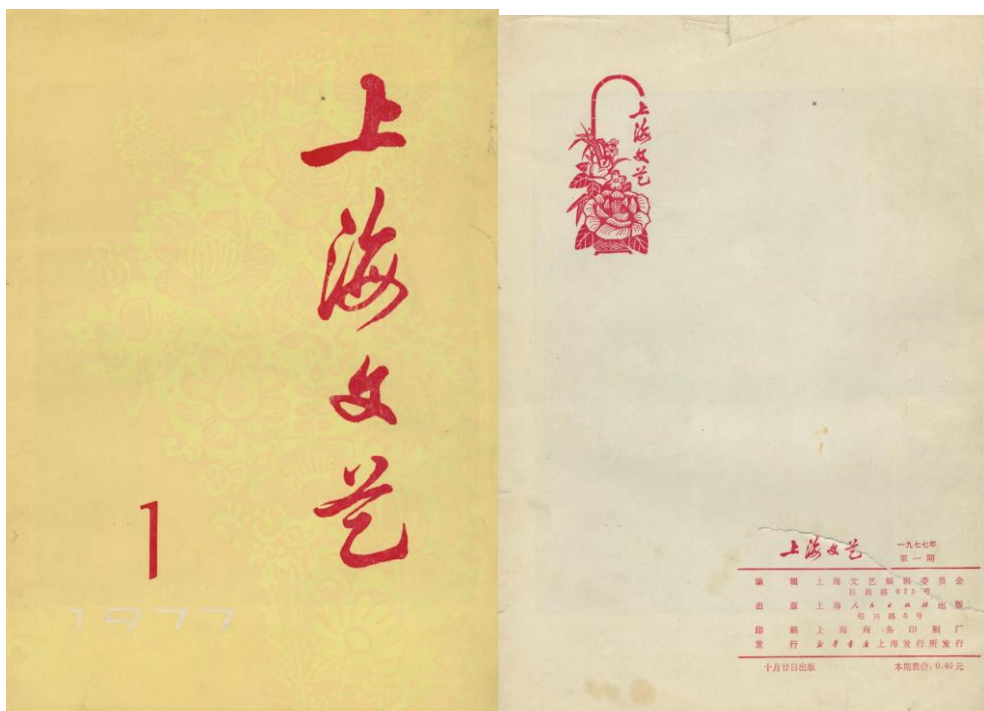 上海文艺
1
1977
上海文艺
上海文艺
一九七七年
第一期
编辑 上海文艺编辑委员会
巨鹿路675号
出版 上海人民出版社出版
绍兴路5号
印刷 上海商务印刷厂
发行 新华书店上海发行所发行
十月廿日出版 本期售价:0.40元